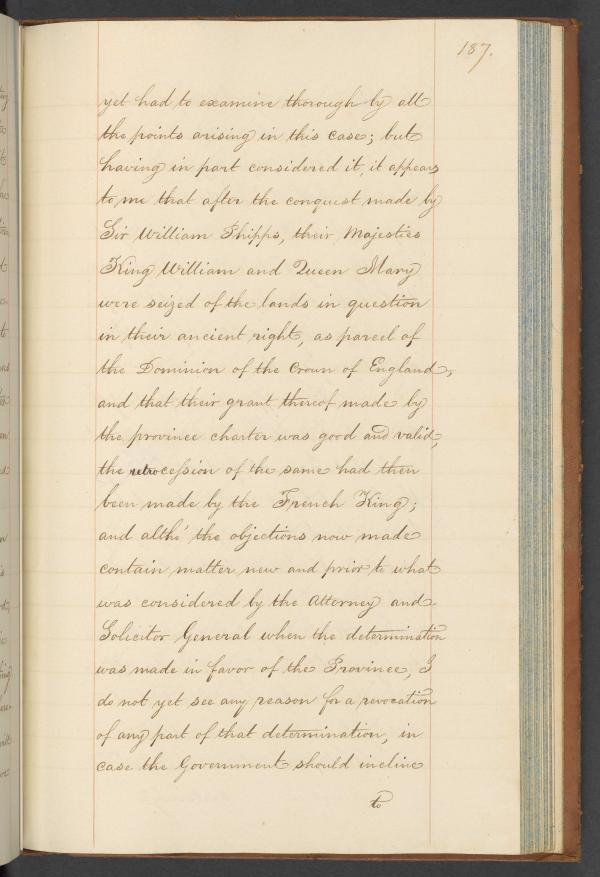 187.
yet had to examine thorough by all
the points arising in this case; but
having in part considered it, it appears
to me that after the conquest made by
Sir William Phipps, their Majesties
King William and Queen Mary
were seized of the lands in question
in their ancient right, as parcel of
the Dominion of the Crown of England,
and that their grant thereof made by
the province charter was good and valid,
the retrocession of the same had then
been made by the French King;
and altho' the objections now made
contain matter new and prior to what
was considered by the Attorney and
Solicitor General when the determination
was made in favor of the Province, I
do not yet see any reason for a revocation
of any part of that determination, in
case the Government should incline
to